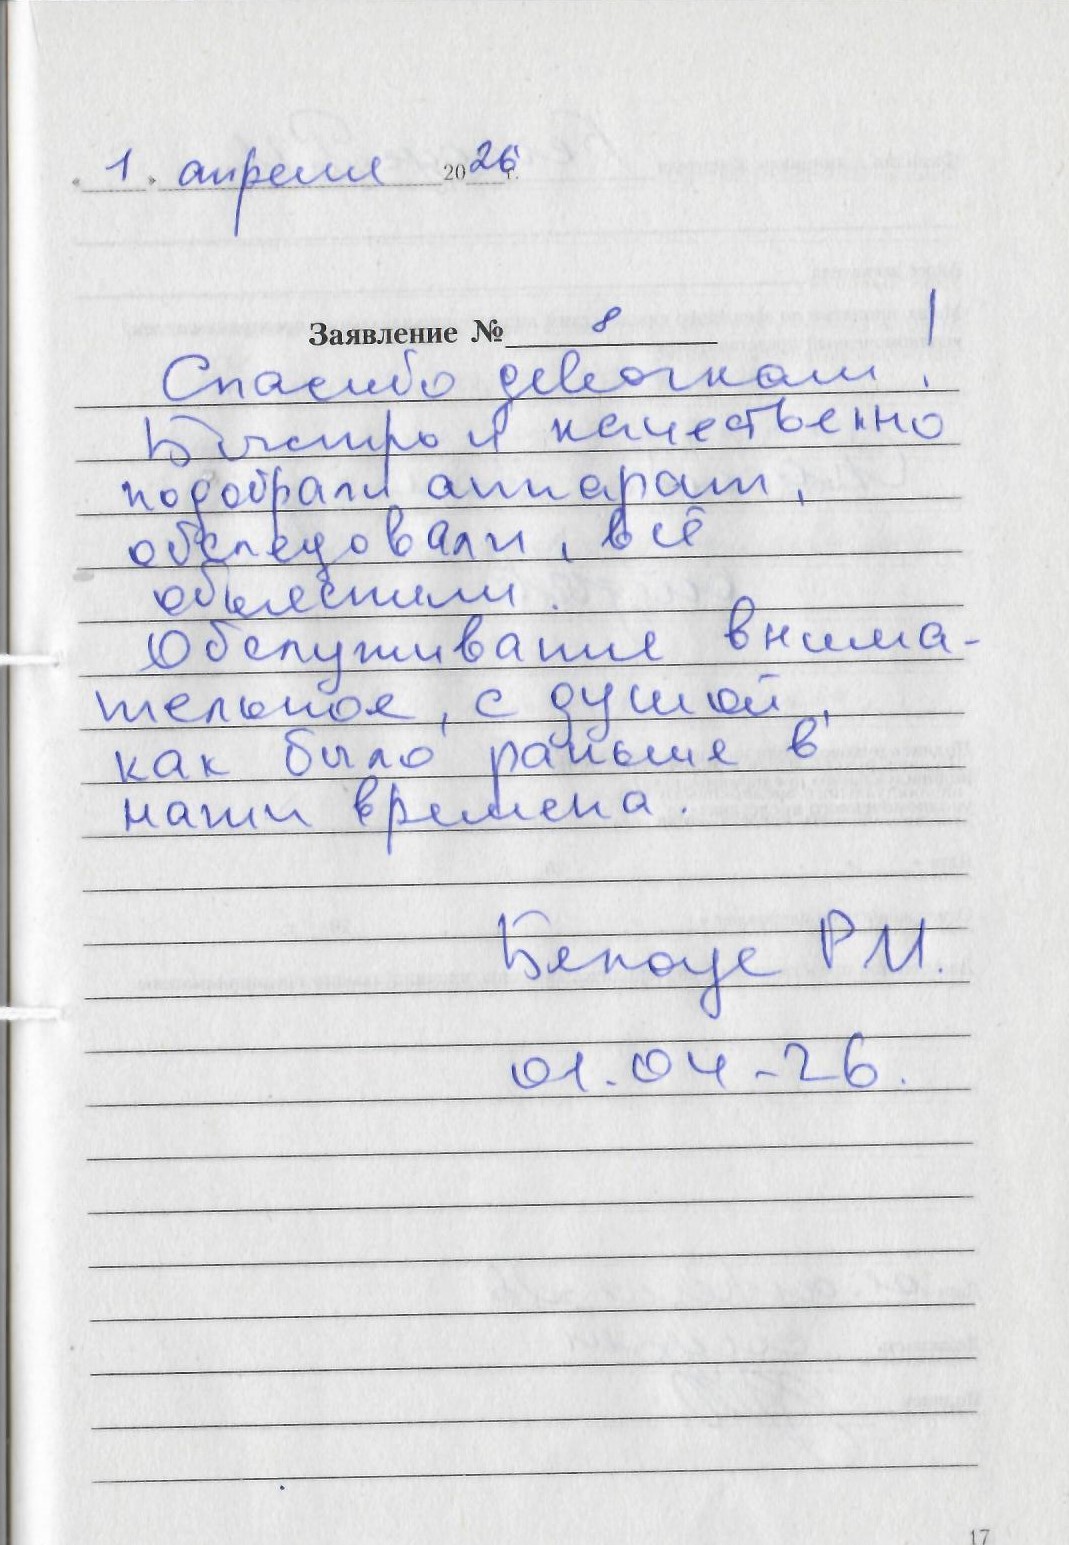 « 1 » апреля 2026 г.
Заявление № 8
Спасибо девочкам!
Быстро и качественно
подобрали аппарат,
обследовали, всё
объяснили.
Обслуживание внима-
тельное, с душой,
как было раньше в
наши времена.
Белоус Р.И.
01.04-26.
17